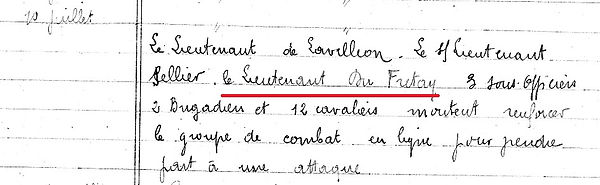 10 juillet
Le Lieutenant de Lavillion. Le S/Lieutenant
Sellier. le Lieutenant Du Fretay 3 sous-officiers
2 Brigadiers et 12 cavaliers montent renforcer
le groupe de combat en ligne pour prendre
part à une attaque